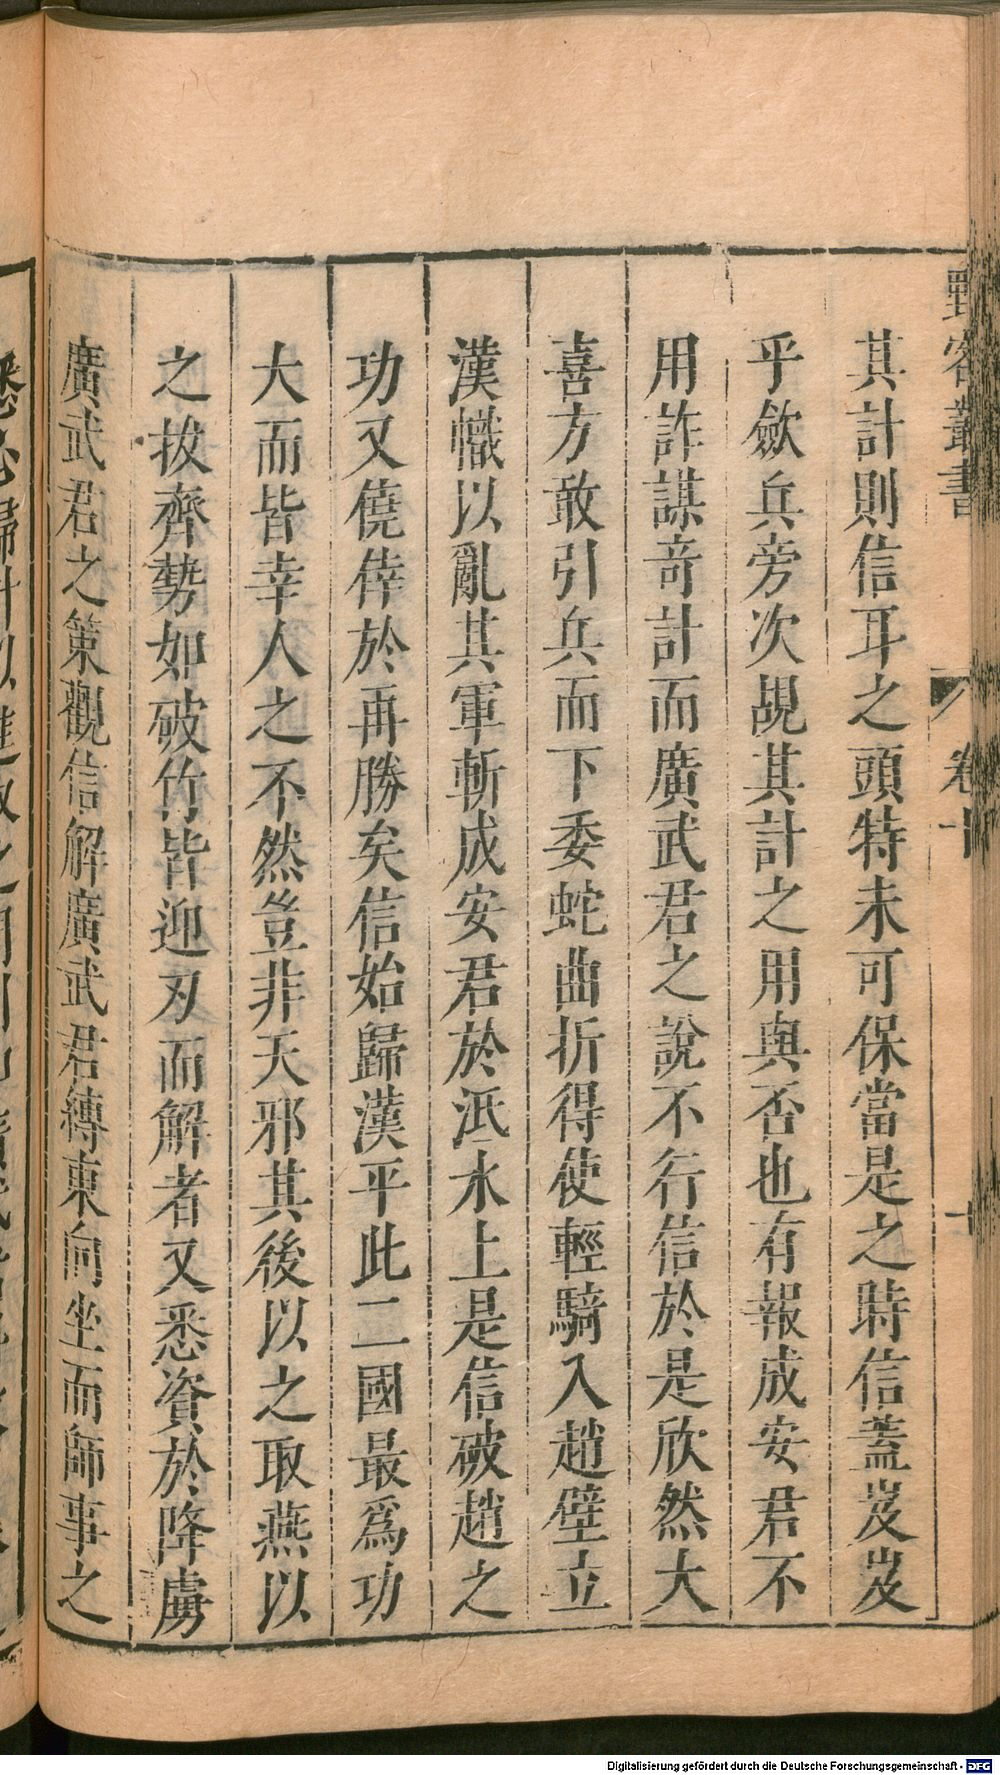 野客叢書
卷十
十
其計則信耳之頭特未可保當是之時信蓋岌岌
乎斂兵旁次覘其計之用與否也有報成安君不
用詐謀奇計而廣武君之說不行信於是欣然大
喜方敢引兵而下委蛇曲折得使輕騎入趙壁立
漢幟以亂其軍斬成安君於泜水上是信破趙之
功又僥倖於再勝矣信始歸漢平此二國最爲功
大而皆幸人之不然豈非天邪其後以之取燕以
之拔齊勢如破竹皆迎刃而解者又悉資於降虜
廣武君之策觀信解廣武君縛東向坐而師事之
Digitalisierung gefördert durch die Deutsche Forschungsgemeinschaft - DFG